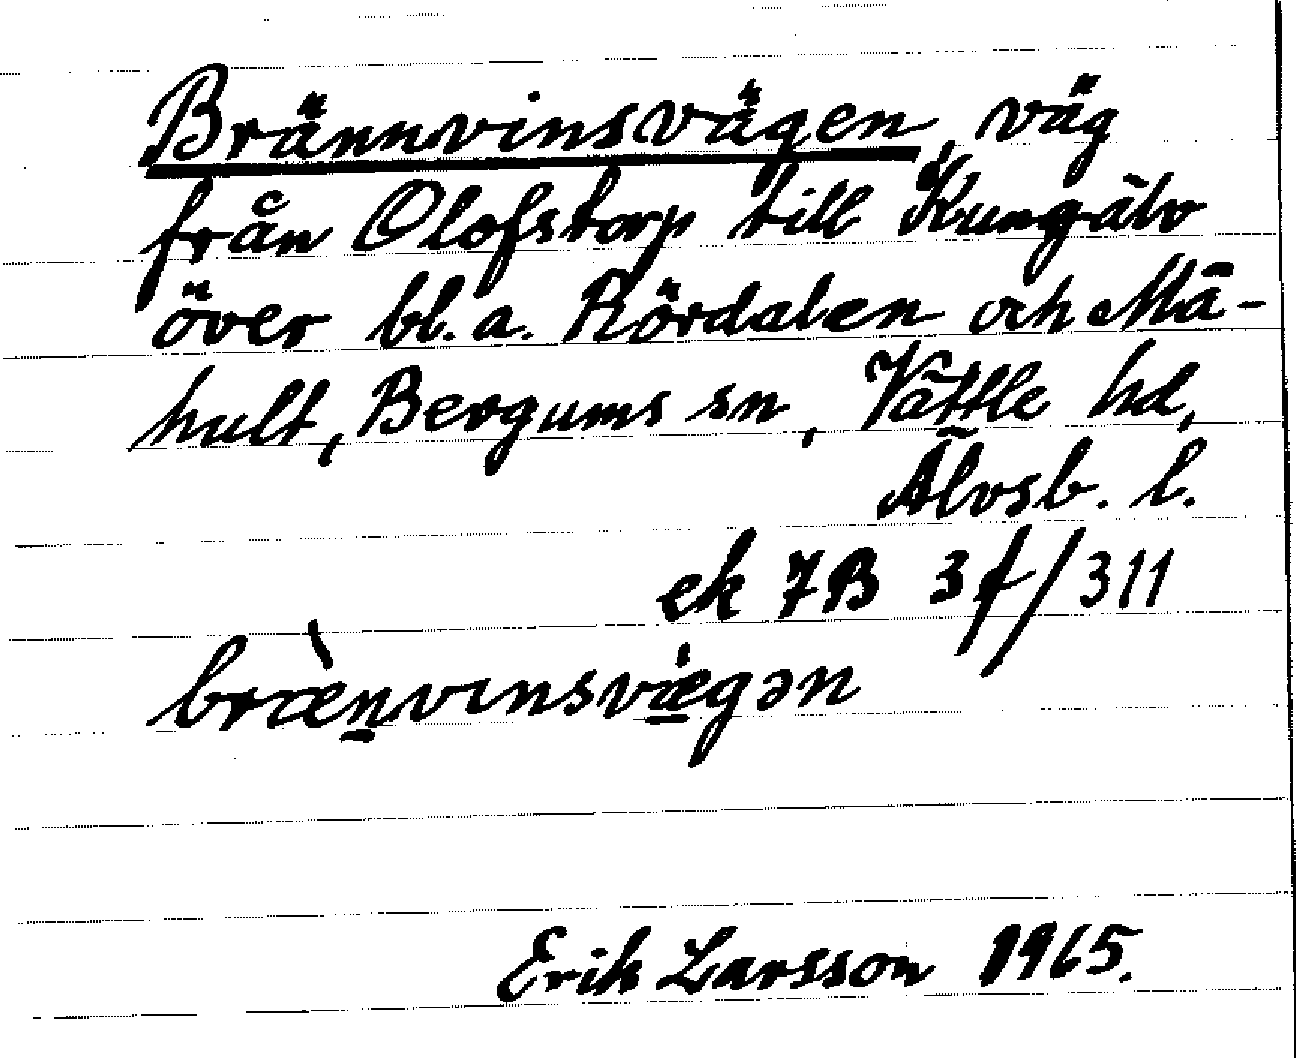 Brännvinsvägen, väg
från Olofstorp till Kungälv
över bl.a. Rördalen och Mä-
hult, Bergums sn, Vättle hd,
Älvsb. l.
ek 7B 3f/311
bræ̀n̲vınsvæ̲̇gən
Erik Larsson 1965.